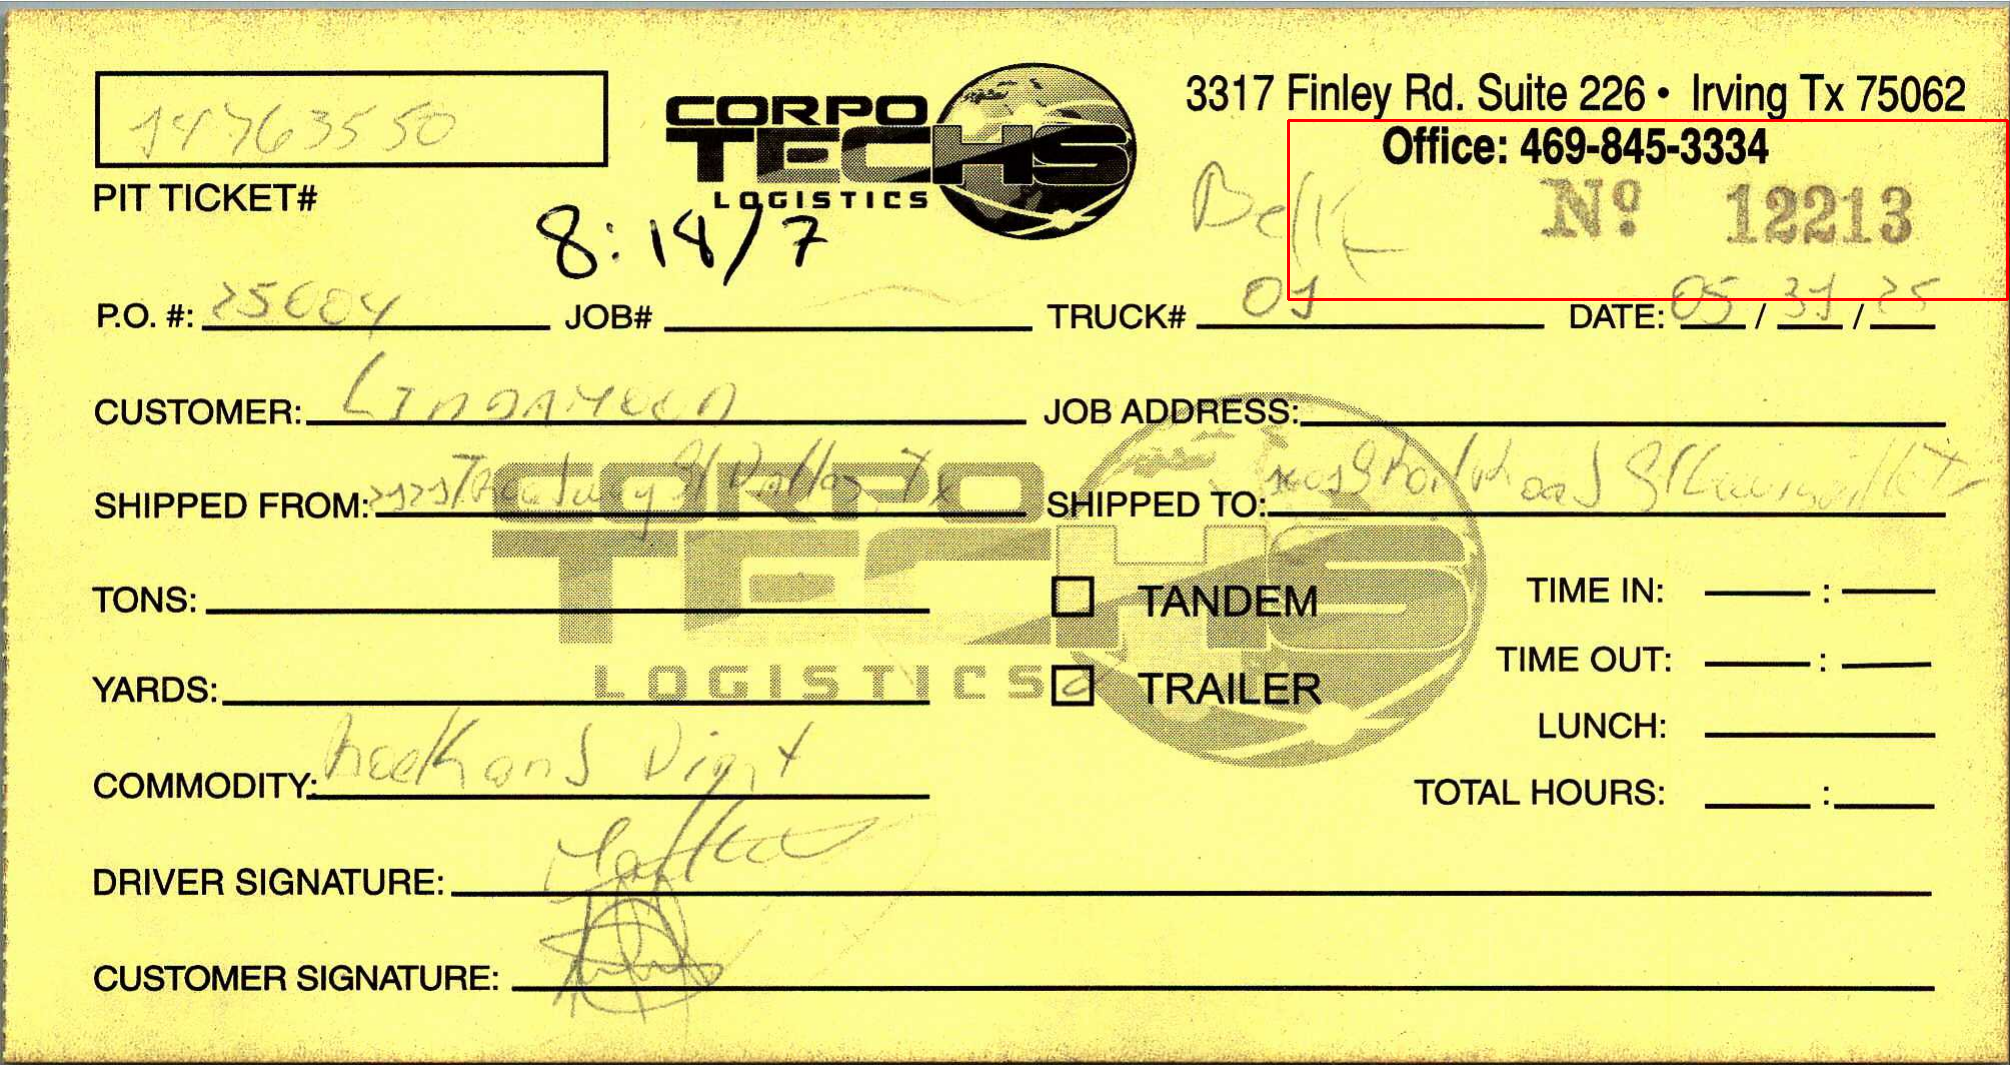 14763550
PIT TICKET#
CORPO
TECHS
LOGISTICS
3317 Finley Rd. Suite 226 • Irving Tx 75062
Office: 469-845-3334
Nº 12213
8:14/7
P.O. #: 25604 JOB# TRUCK# 01 DATE: 05/31/25
CUSTOMER: JOB ADDRESS:
SHIPPED FROM: St Dallas Tx SHIPPED TO:
CORPO
TECHS
LOGISTICS
TONS: TANDEM TIME IN: :
YARDS: TRAILER TIME OUT: :
LUNCH:
COMMODITY: TOTAL HOURS: :
DRIVER SIGNATURE:
CUSTOMER SIGNATURE: